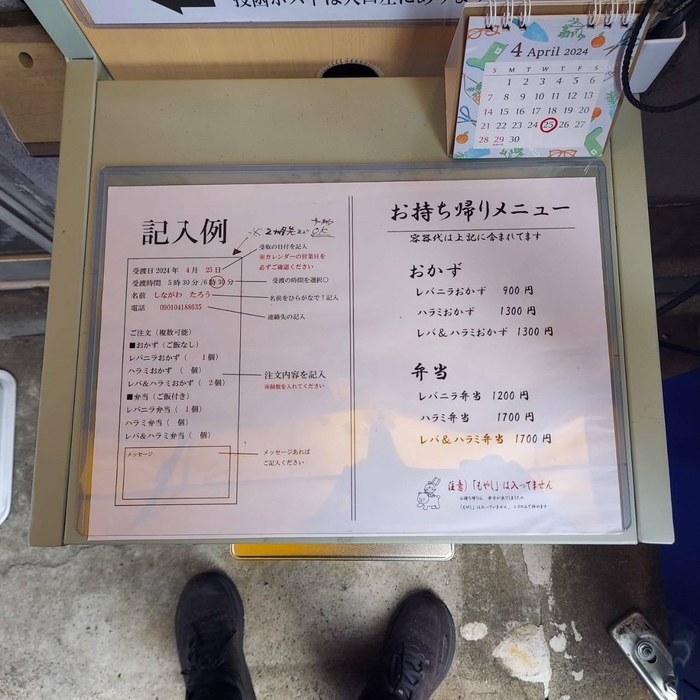 4 April 2024
S M T W T F S
1 2 3 4 5 6
7 8 9 10 11 12 13
14 15 16 17 18 19 20
21 22 23 24 25 26 27
28 29 30
記入例
※ 2ヶ月先まで
OK
受渡日 2024 年 4 月 25 日
受渡時間 5 時 30 分 / 6 時 30 分
名前 しながわ たろう
電話 090104188635
受取の日付を記入
※カレンダーの営業日を
必ずご確認ください
受渡の時間を選択○
名前をひらがなで!記入
連絡先の記入
ご注文(複数可能)
■おかず(ご飯なし)
レバニラおかず( 1個)
ハラミおかず( 個)
レバ&ハラミおかず( 2個)
■弁当(ご飯付き)
レバニラ弁当( 1個)
ハラミ弁当( 個)
レバ&ハラミ弁当( 個)
注文内容を記入
※個数を入れてください
メッセージ
メッセージあれば
ご記入ください
お持ち帰りメニュー
容器代は上記に含まれてます
おかず
レバニラおかず 900 円
ハラミおかず 1300 円
レバ&ハラミおかず 1300 円
弁当
レバニラ弁当 1200 円
ハラミ弁当 1700 円
レバ&ハラミ弁当 1700 円
注意)「もやし」は入ってません